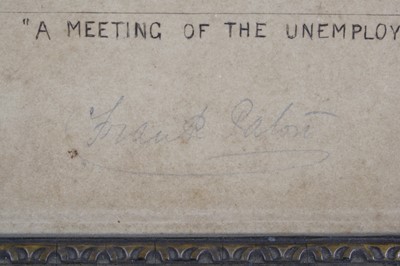 "A MEETING OF THE UNEMPLOY
Frank Paton